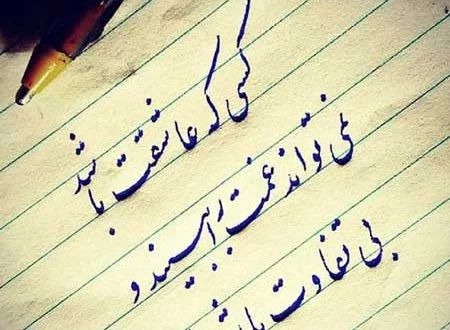 کسی که عاشقت باشد
نمی تواند غمت را ببیند و
بی تفاوت باشد